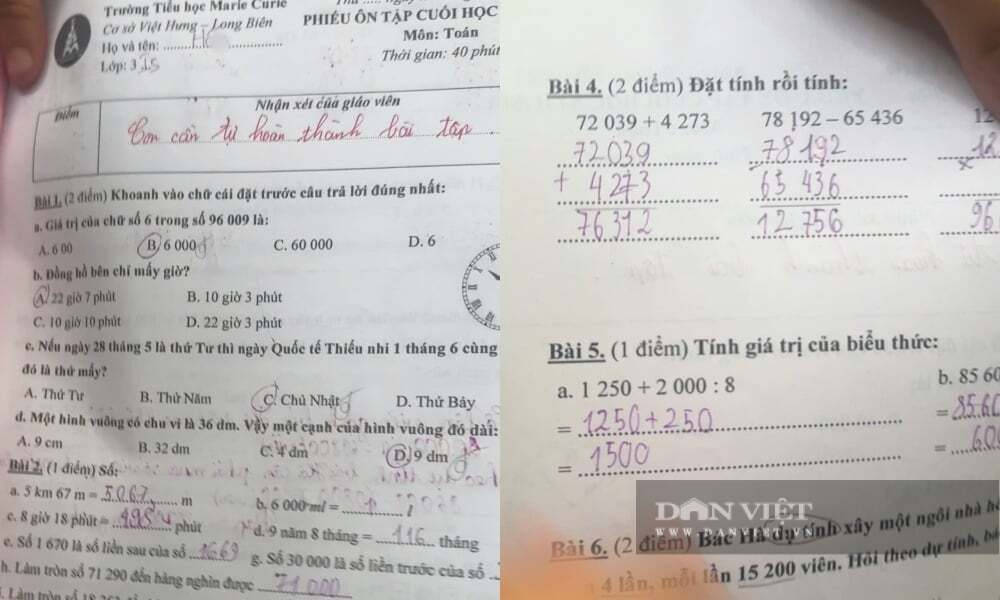 Trường Tiểu học Marie Curie
Cơ sở Việt Hưng – Long Biên
Họ và tên:
Lớp: 3
PHIẾU ÔN TẬP CUỐI HỌC
Môn: Toán
Thời gian: 40 phút
Điểm
Nhận xét của giáo viên
Con cần tự hoàn thành bài tập
Bài 1. (2 điểm) Khoanh vào chữ cái đặt trước câu trả lời đúng nhất:
a. Giá trị của chữ số 6 trong số 96 009 là:
A. 6 00 B. 6 000 C. 60 000 D. 6
b. Đồng hồ bên chỉ mấy giờ?
A. 22 giờ 7 phút B. 10 giờ 3 phút
C. 10 giờ 10 phút D. 22 giờ 3 phút
c. Nếu ngày 28 tháng 5 là thứ Tư thì ngày Quốc tế Thiếu nhi 1 tháng 6 cùng
đó là thứ mấy?
A. Thứ Tư B. Thứ Năm C. Chủ Nhật D. Thứ Bảy
d. Một hình vuông có chu vi là 36 dm. Vậy một cạnh của hình vuông đó dài:
A. 9 cm B. 32 dm C. 4 dm D. 9 dm
Bài 2. (1 điểm) Số:
a. 5 km 67 m = 5067 m b. 6 000 ml = l
c. 8 giờ 18 phút = 498 phút d. 9 năm 8 tháng = 116 tháng
e. Số 1 670 là số liền sau của số 1669 g. Số 30 000 là số liền trước của số
h. Làm tròn số 71 290 đến hàng nghìn được 71 000
Làm tròn số 18
Bài 4. (2 điểm) Đặt tính rồi tính:
72 039 + 4 273 78 192 – 65 436 12
72039 78192 12
+ 4273 - 65436 x
76312 12756 96
Bài 5. (1 điểm) Tính giá trị của biểu thức:
a. 1 250 + 2 000 : 8 b. 85 60
= 1250 + 250 = 8560
= 1500 = 60
DÂN VIỆT
WWW.DANVIET.VN
Bài 6. (2 điểm) Bác Hà dự tính xây một ngôi nhà
4 lần, mỗi lần 15 200 viên. Hỏi theo dự tính,